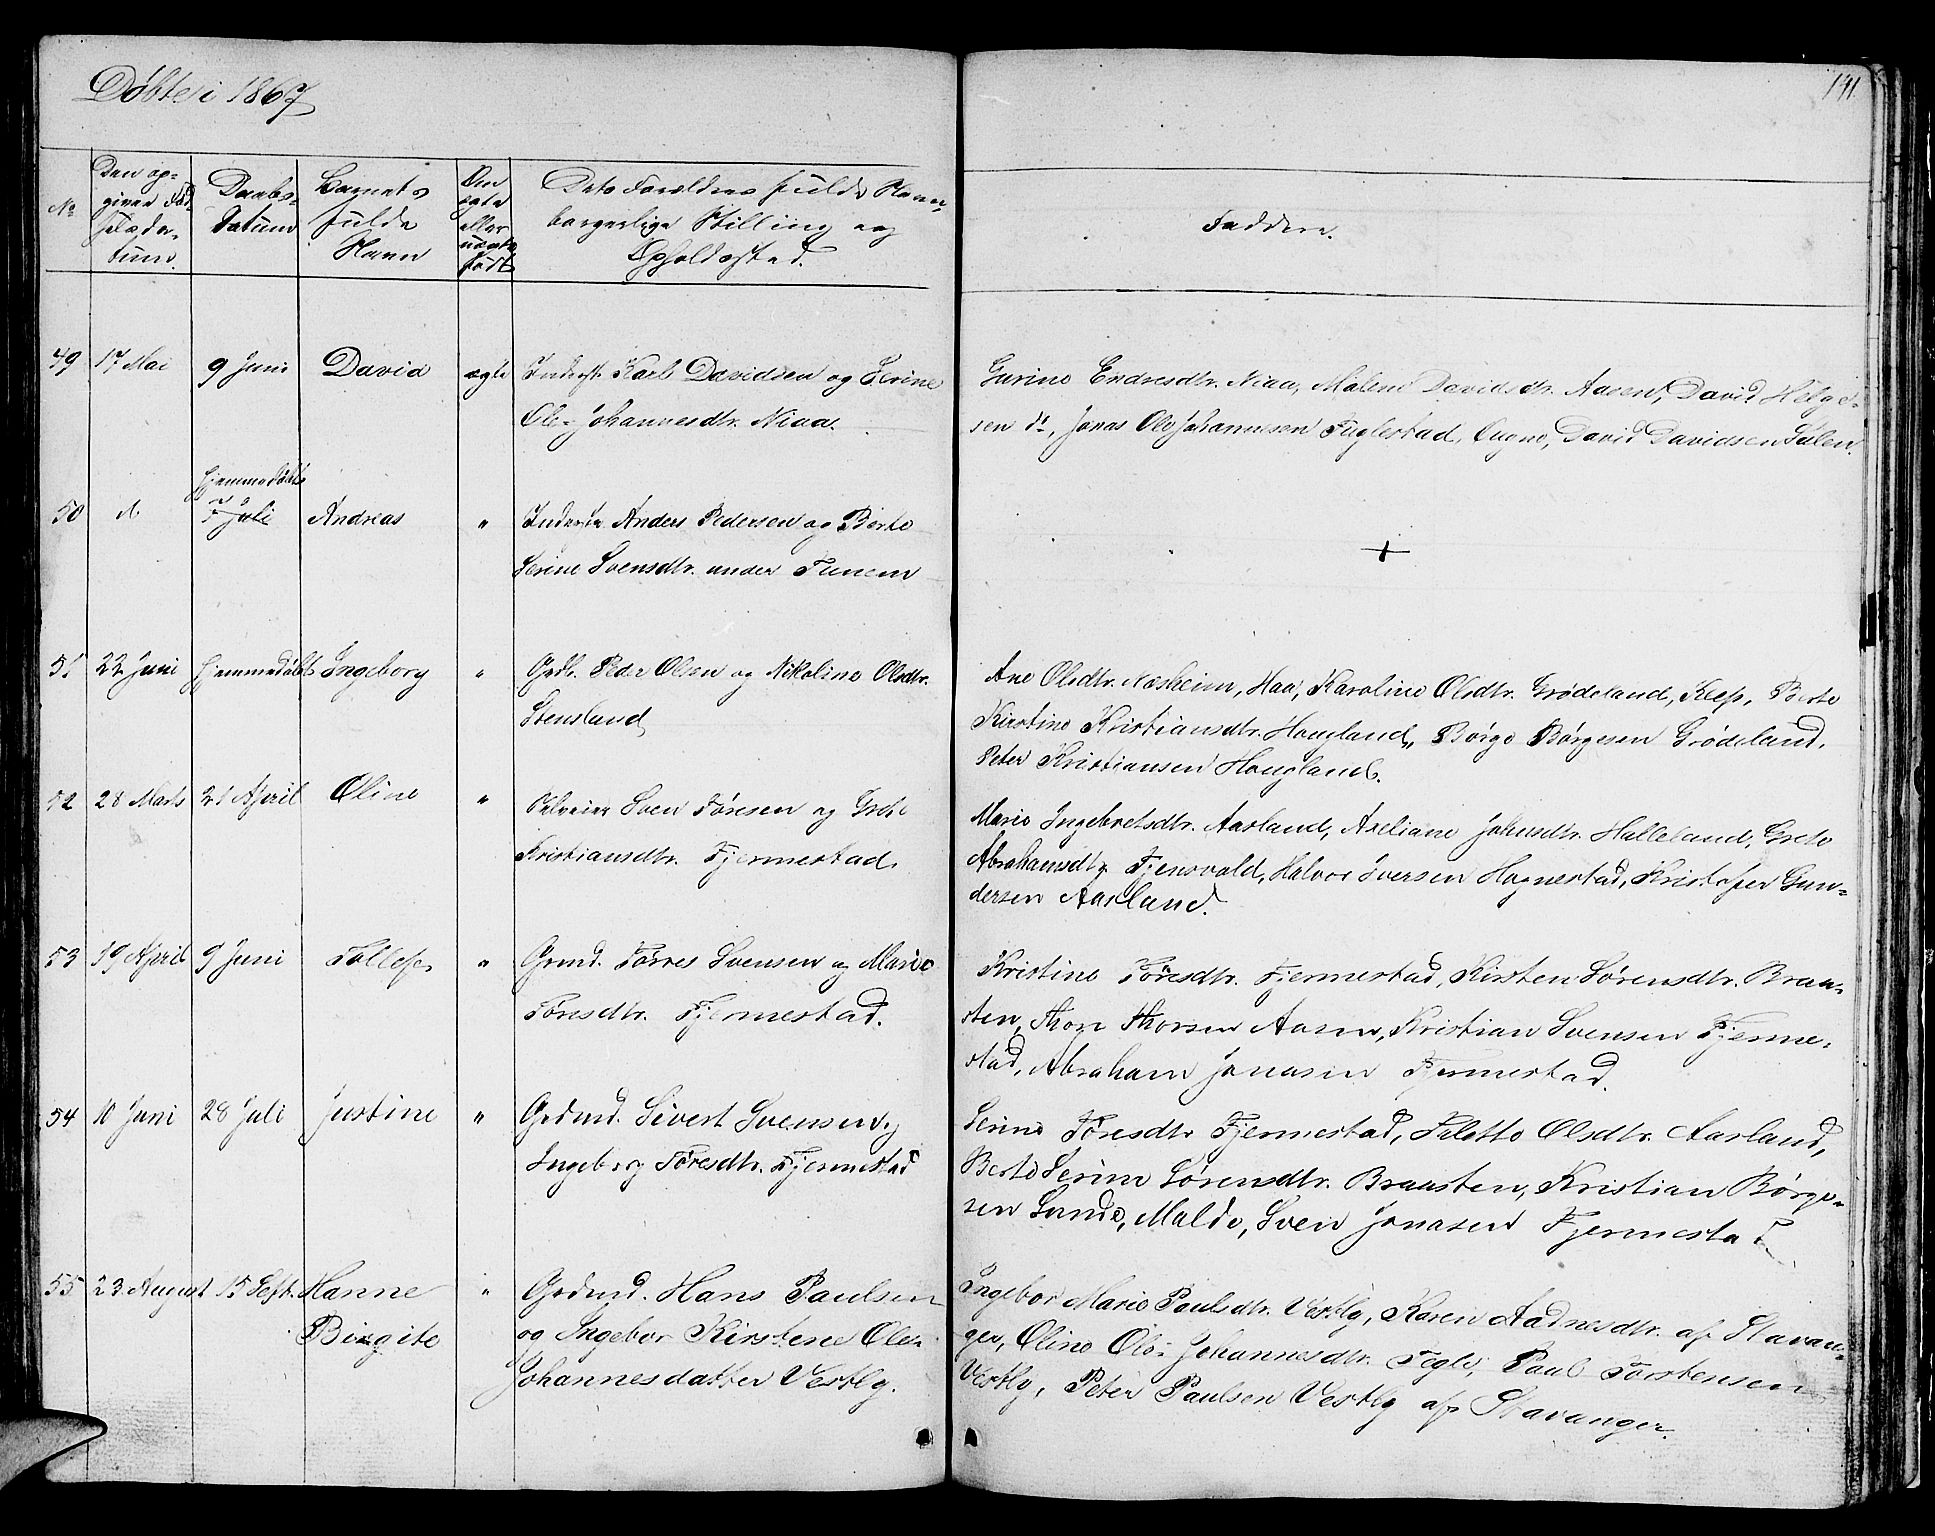 Döbte i 1867
141
No
Den op-
given Fød-
selsda-
tum.
Daabs-
Datum
Barnets
fulde
Navn
Om
ægte
eller
uægte
født
Dets Forældres fulde Navn,
borgerlige Stilling og
Opholdssted.
Faddere.
49 17 Mai 9 Juni David ægte Inderst Karl Davidsen og Serine
Ole-Johannesdtr. Niaa.
Gurine Endresdtr. Niaa, Malene Davidsdtr. Aasen, David Helge-
sen do, Jonas Ole Johannesen Fuglestad, Ougne, David Davidsen Salen.
Hjemmedøbt
50 7 Juli Andreas " Inderste Anders Pedersen og Berte
Serine Svensdtr. under Tunem
+
51 22 Juni Hjemmedöbt Ingeborg " Grdb. Peder Olsen og Nikoline Olsdtr.
Stensland
Ane Olsdtr. Næsheim, Haa, Karoline Olsdtr. Grødeland, Klep, Berte
Kirstine Kristiansdtr. Hougland, Børge Børgesen Grødeland,
Peter Kristiansen Hougland.
52 28 Marts 21 April Oline " Selveier Sven Töresen og Grete
Kristiansdtr. Fjermestad.
Marie Ingebretsdtr. Aasland, Axeliane Johnsdtr. Halleland, Grete
Abrahamsdtr. Tjensvold, Halvor Iversen Hognestad, Kristofer Gun-
dersen Aasland.
53 19 April 9 Juni Tollef " Grmd. Törres Svensen og Marie
Töresdtr. Fjermestad.
Kristine Töresdtr. Fjermestad, Kirsten Sörensdtr. Braa-
sten, Thore Thorsen Aasen, Kristian Svensen Fjerme-
stad, Abraham Jonasen Fjermestad.
54 10 Juni 28 Juli Justine " Grdmd. Sivert Svensen og
Ingeborg Töresdtr. Fjermestad
Serine Töresdtr. Fjermestad, Olsdtr. Aasland,
Berte Serine Sörensdtr. Braasten, Kristian Börge-
sen Lunde, Malde, Sven Jonasen Fjermestad
55 23 August 15 Sept. Hanne " Grdmd. Hans Paulsen
Birgite og Ingebor Kirstene Ole-
Johannesdatter Vestly.
Ingebor Marie Paulsdtr. Vestly, Karen Aadnesdtr. af Stavan-
ger, Oline Ole-Johannesdtr. Tegle, Paul Torstensen
Vestly, Peter Paulsen Vestly af Stavanger.